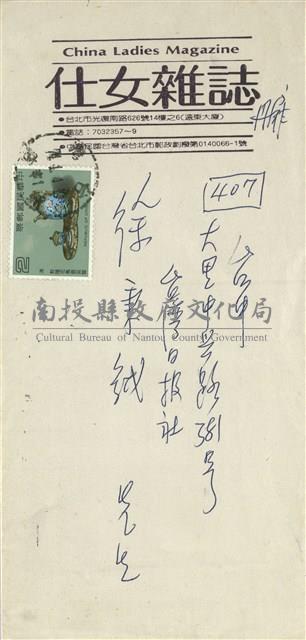 China Ladies Magazine
仕女雜誌
●台北市光復南路626號14樓之6(遠東大廈)
●電話：7032357~9
●中華民國台灣省台北市郵政劃撥第0140066-1號
407
台中
大里中興路381号
台灣日報社
徐秉鉞 先生
中華民國郵票
2
南投縣政府文化局
Cultural Bureau of Nantou County Government